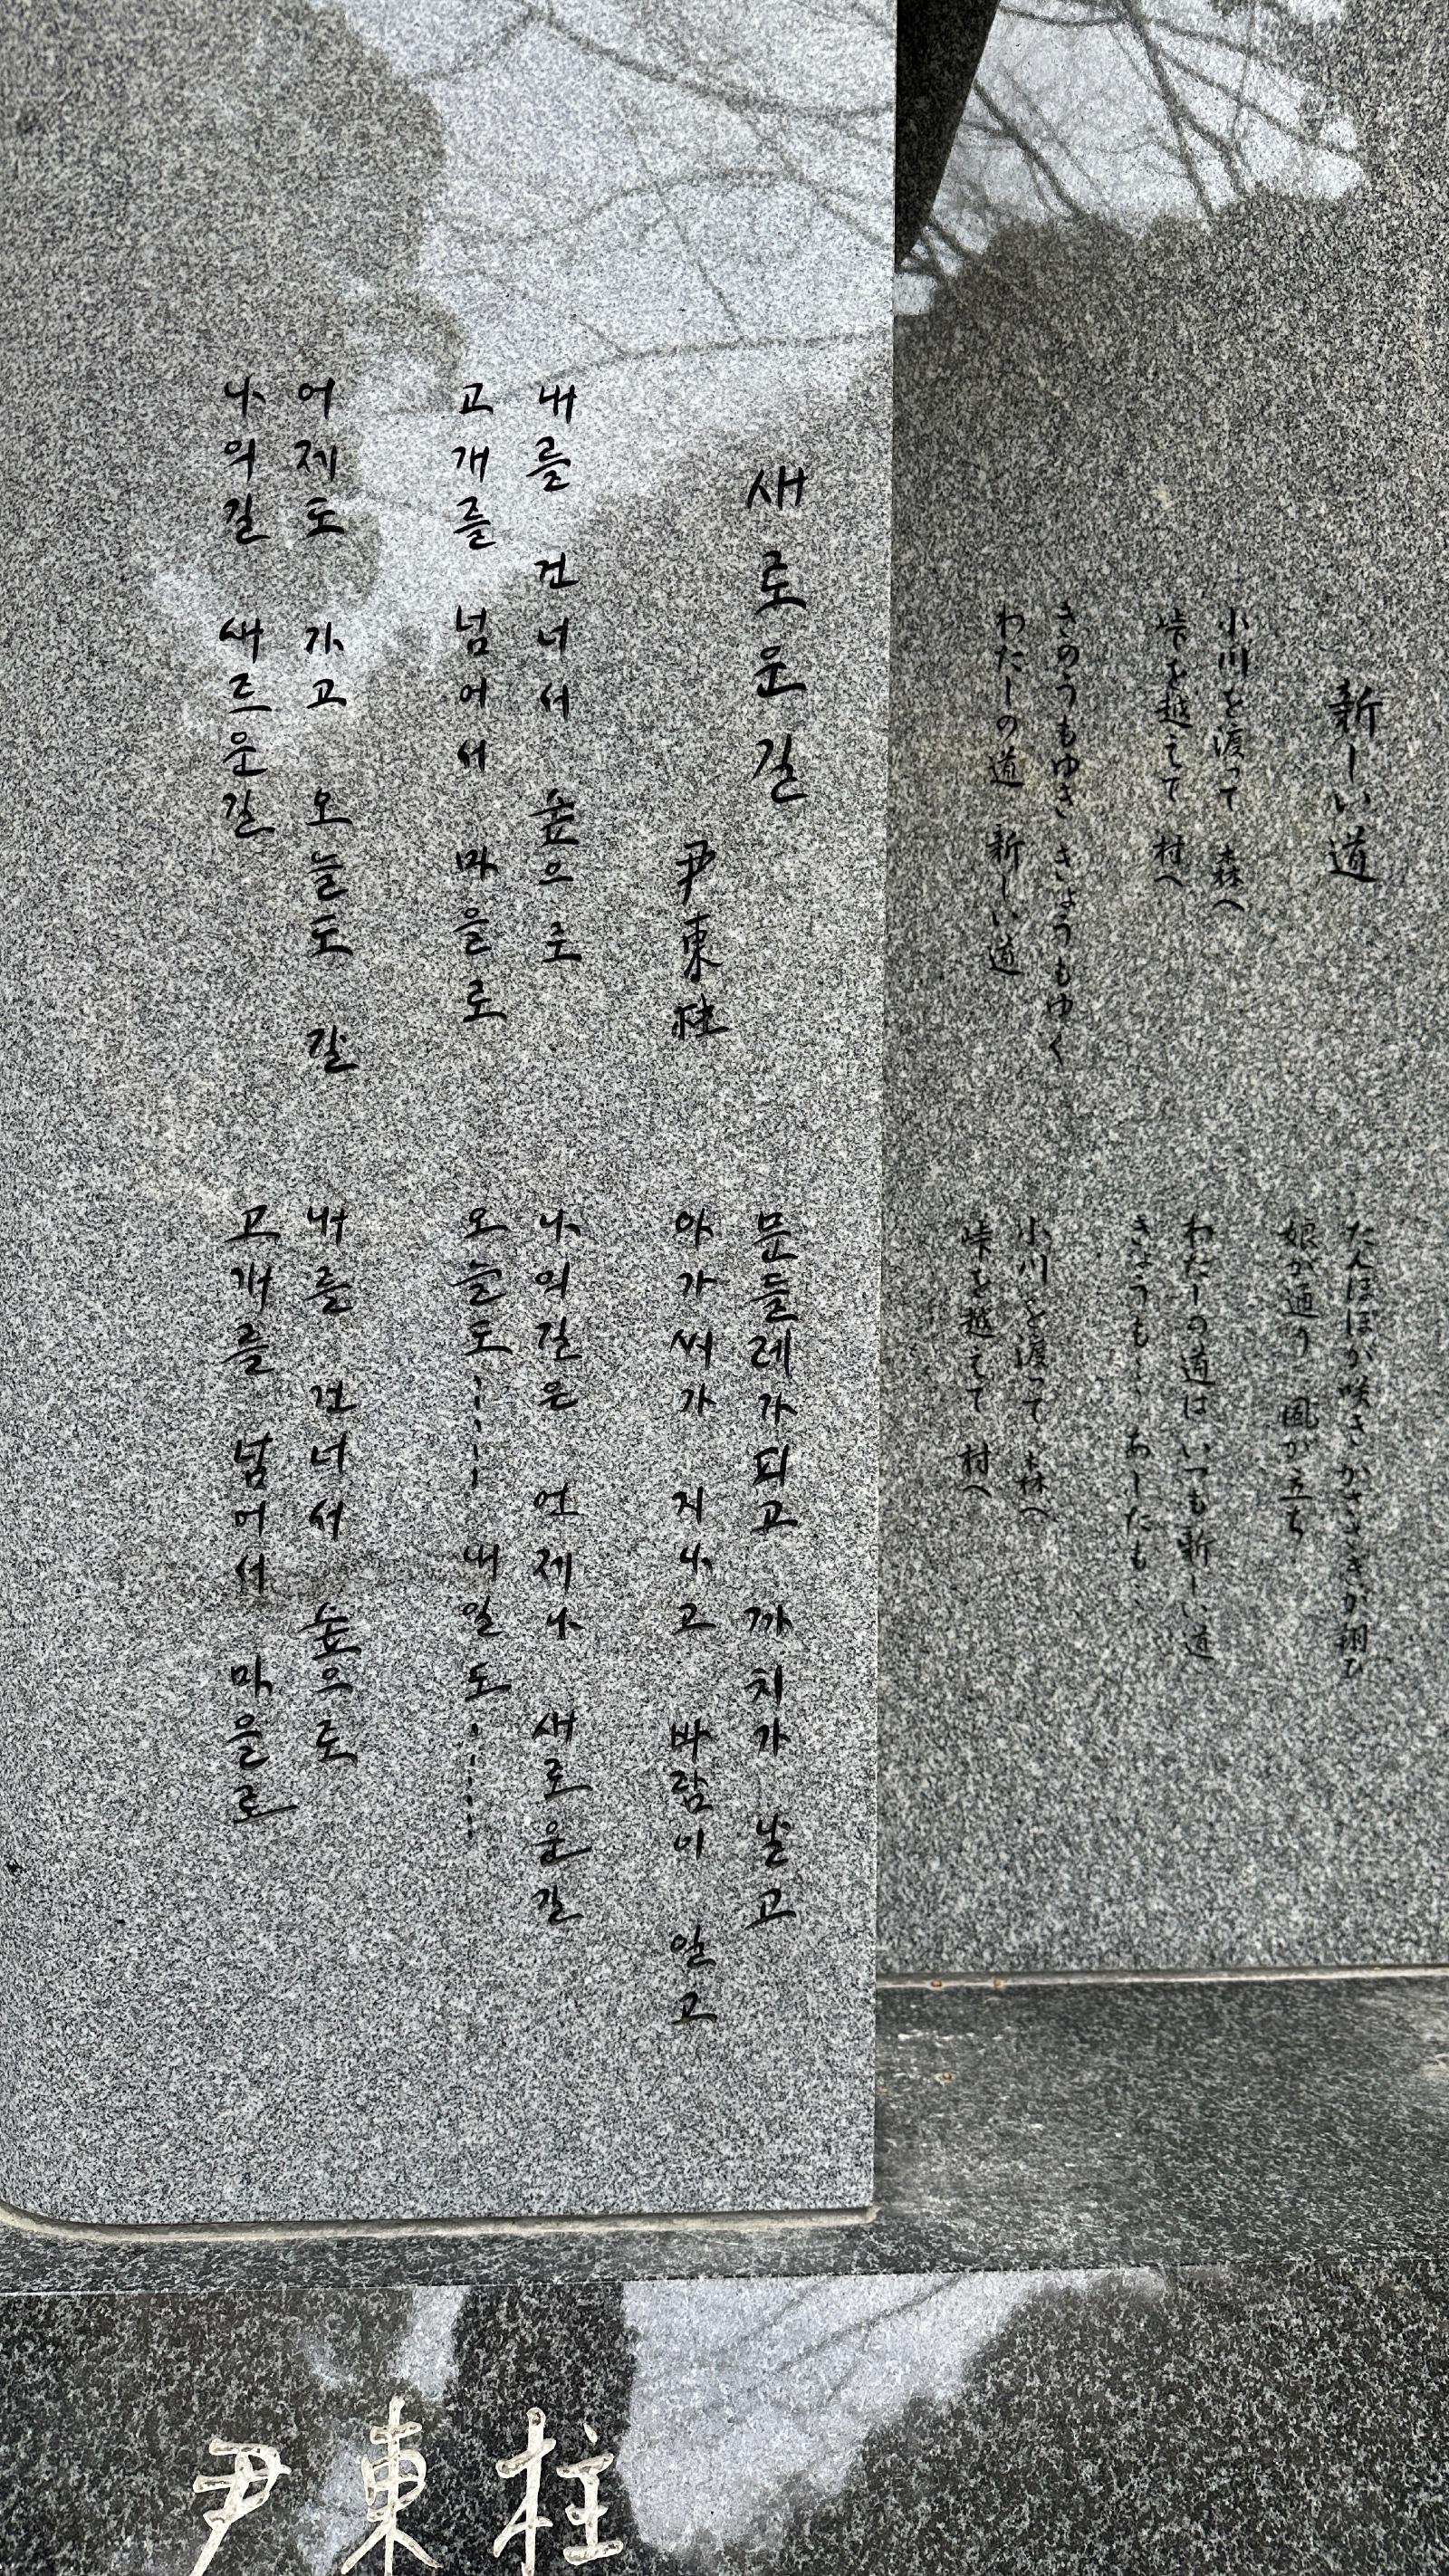 新しい道
小川を渡って 森へ
峠を越えて 村へ
きのうもゆき きょうもゆく
わたしの道 新しい道
たんぽぽが咲き かささぎが翔び
娘が通り 風が立ち
わたしの道は いつも新しい道
きょうも‥ あしたも‥
小川を渡って 森へ
峠を越えて 村へ
새로운길
尹東柱
내를 건너서 숲으로
고개를 넘어서 마을로
어제도 가고 오늘도 갈
나의길 새르운길
문들레가 피고 까치가 날고
아가씨가 지나고 바람이 일고
나의길은 언제나 새로운길
오늘도…… 내일도……
내를 건너서 숲으로
고개를 넘어서 마을로
尹東柱